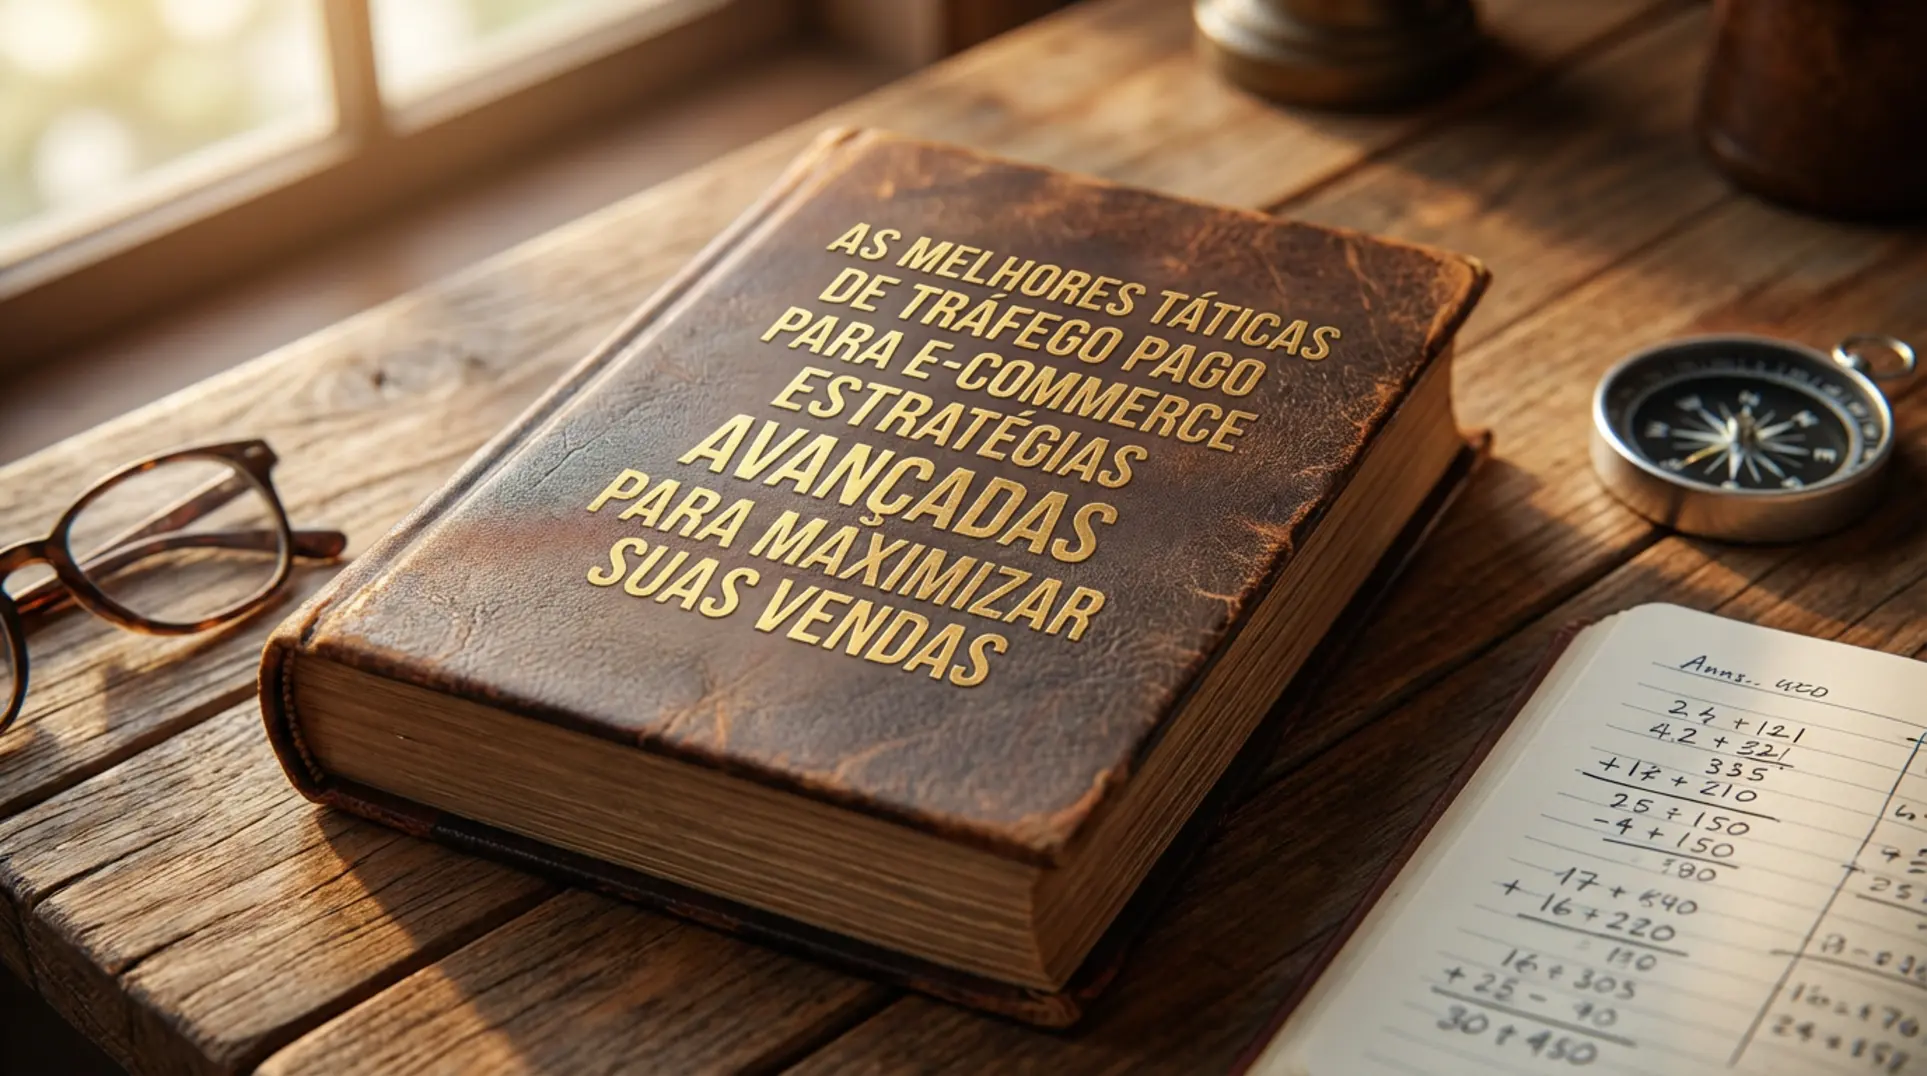 AS MELHORES TÁTICAS
DE TRÁFEGO PAGO
PARA E-COMMERCE
ESTRATÉGIAS
AVANÇADAS
PARA MÁXIMIZAR
SUAS VENDAS
24 + 121
4.2 + 321
335
+ 210
25 + 150
- 4 + 150
17 +
+ 16 + 220
16 + 305
+ 25 -
30 + 450